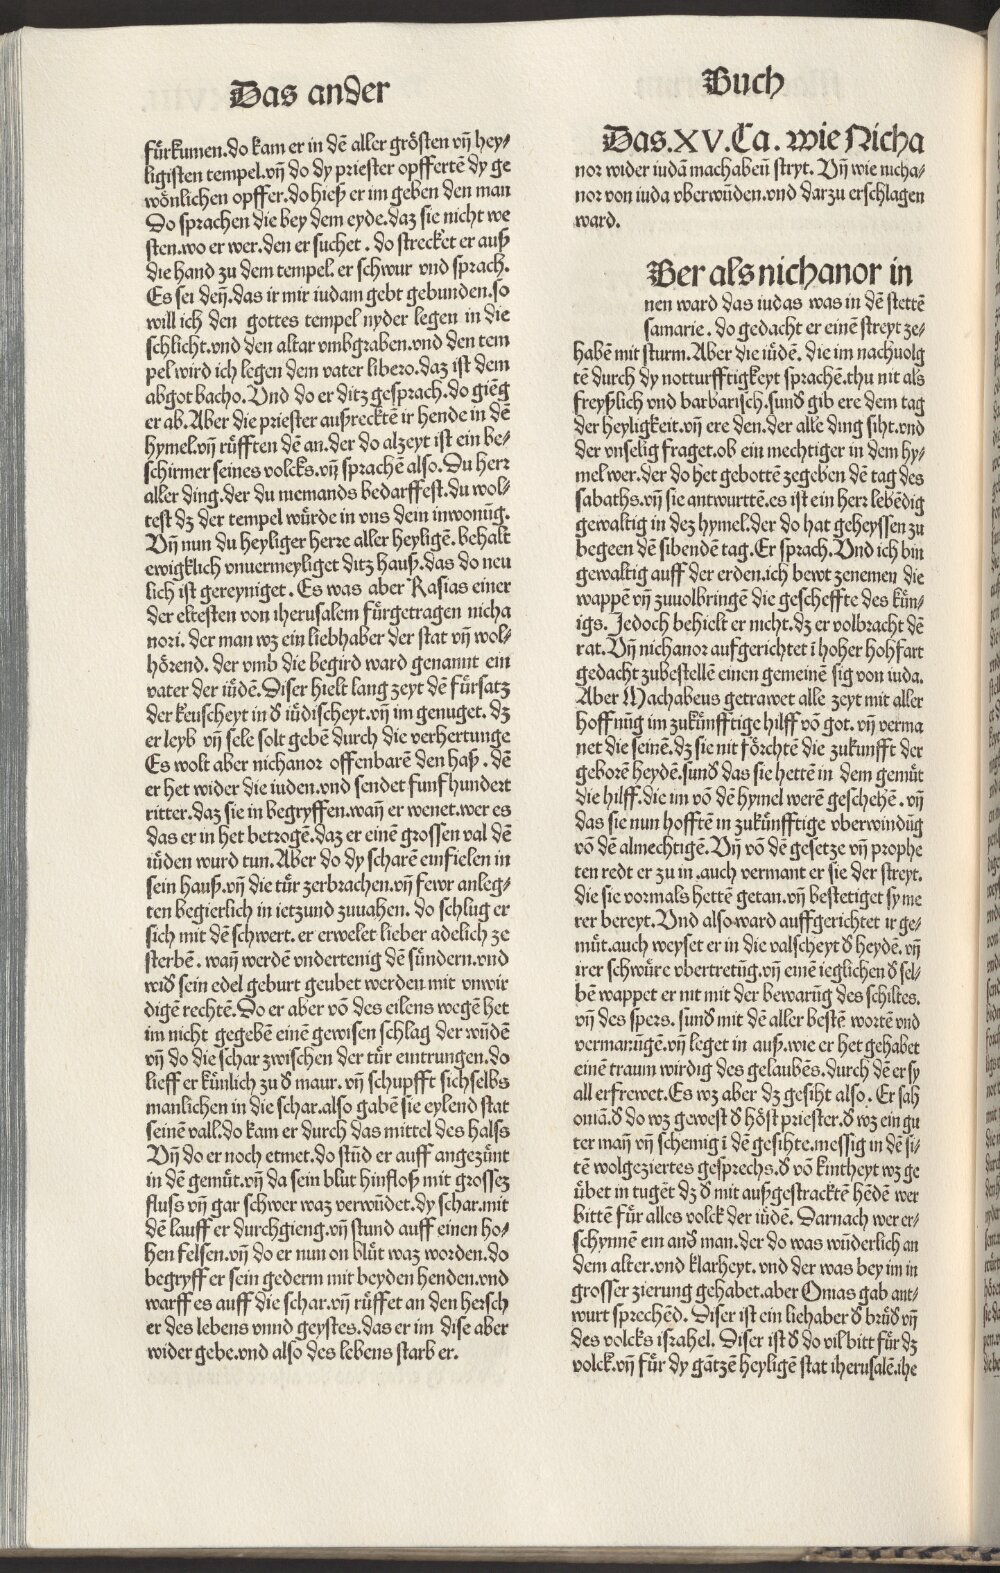 Das ander
Buch
fürkumen.do kam er in dē aller grösten vn̄ hey⸗
ligisten tempel.vn̄ do dy priester opffertē dy ge
wönlichen opffer.do hieß er im geben den man
Do sprachen die bey dem eyde.daz sie nicht we
sten.wo er wer.den er suchet. do strecket er auß
die hand zu dem tempel. er schwur vnd sprach.
Es sei den̄.das ir mir iudam gebt gebunden.so
will ich den gottes tempel nyder legen in die
schlicht.vnd den altar vmbgraben.vnd den tem
pel wird ich legen dem vater libero.daz ist dem
abgot bacho. Vnd do er ditz gesprach.do gieng
er ab. Aber die priester außrecktē ir hende in dē
hymel.vn̄ rüfften dē an.der do alzeyt ist ein be⸗
schirmer seines volcks.vn̄ sprachē also. Du herr
aller ding.der du niemands bedarffest.du wol⸗
test dz der tempel würde in vns dein inwonūg.
Vn̄ nun du heyliger herre aller heyligē. behalt
ewigklich vnuermeyliget ditz hauß.das do neu
lich ist gereyniget. Es was aber Rasias einer
der eltesten von iherusalem fürgetragen nicha
nori. der man wz ein liebhaber der stat vn̄ wol⸗
hörend. der vmb die begird ward genannt ein
vater der iüdē. Diser hielt lang zeyt dē fürsatz
der keuscheyt in d̕ iüdischeyt.vn̄ im genuget. dz
er leyb vn̄ sele solt gebē durch die verhertunge
Es wolt aber nichanor offenbarē den haß. dē
er het wider die iuden.vnd sendet funf hundert
ritter.daz sie in begryffen.wan̄ er wenet.wer es
das er in het betrogē.daz er einē grossen val dē
iüden wurd tun. Aber do dy scharē einfielen in
sein hauß.vn̄ die tür zerbrachen.vn̄ fewr anleg⸗
ten begierlich in ietzund zuuahen. do schlug er
sich mit dē schwert. er erwelet lieber adelich ze
sterbē. wan̄ werdē vndertenig dē sündern.vnd
wid̕ sein edel geburt geubet werden mit vnwir
digē rechtē. Do er aber vō des eilens wegē het
im nicht gegebē einē gewisen schlag der wūdē
vn̄ do die schar zwischen der tür eintrungen.do
lieff er künlich zu d̕ maur. vn̄ schupfft sichselbs
manlichen in die schar.also gabē sie eylend stat
seinē vall.do kam er durch das mittel des halss
Vn̄ do er noch etmet.do stūd er auff angezünt
in dē gemüt.vn̄ da sein blut hinfloß mit grossez
fluss vn̄ gar schwer waz verwūdet.dy schar.mit
dē lauff er durchgieng.vn̄ stund auff einen ho⸗
hen felsen.vn̄ do er nun on blüt waz worden.do
begryff er sein gederm mit beyden henden.vnd
warff es auff die schar.vn̄ rüffet an den hersch
er des lebens vnnd geystes.das er im dise aber
wider gebe.vnd also des lebens starb er.
Das.XV.Ca. wie Nicha
nor wider iudā machabeū stryt. Vn̄ wie nicha⸗
nor von iuda vberwūden.vnd darzu erschlagen
ward.
Ber als nichanor in
nen ward das iudas was in dē stettē
samarie. do gedacht er einē streyt ze⸗
habē mit sturm. Aber die iüdē. die im nachuolg
tē durch dy notturfftigkeyt sprachē.thu nit als
freyßlich vnd barbarisch.sund̕ gib ere dem tag
der heyligkeit.vn̄ ere den.der alle ding siht.vnd
der vnselig fraget.ob ein mechtiger in dem hy⸗
mel wer.der do het gebottē zegeben dē tag des
sabaths.vn̄ sie antwurttē.es ist ein herr lebēdig
gewaltig in dez hymel.der do hat geheyssen zu
begeen dē sibendē tag. Er sprach. Vnd ich bin
gewaltig auff der erden.ich bewt zenemen die
wappē vn̄ zuuolbringē die gescheffte des kün⸗
igs. Jedoch behielt er nicht.dz er volbracht dē
rat. Vn̄ nichanor aufgerichtet ī hoher hohfart
gedacht zubestellē einen gemeinē sig von iuda.
Aber Machabeus getrawet alle zeyt mit aller
hoffnūg im zukünfftige hilff vō got. vn̄ verma
net die seinē.dz sie nit förchtē die zukunfft der
geborē heydē.sund̕ das sie hettē in dem gemüt
die hilff.die im vō dē hymel werē geschehē. vn̄
das sie nun hofftē in zukünfftige vberwindūg
vō dē almechtigē. Vn̄ vō dē gesetze vn̄ prophe
ten redt er zu in.auch vermant er sie der streyt.
die sie vormals hettē getan.vn̄ bestetiget sy me
rer bereyt. Vnd also ward auffgerichtet ir ge⸗
müt.auch weyset er in die valscheyt d̕ heydē. vn̄
irer schwüre vbertretūg.vn̄ einē ieglichen d̕ sel⸗
bē wappet er nit mit der bewarūg des schiltes.
vn̄ des spers. sund̕ mit dē aller bestē wortē vnd
vermanūgē.vn̄ leget in auß.wie er het gehabet
einē traum wirdig des gelaubēs.durch dē er sy
all erfrewet. Es wz aber dz gesiht also. Er sah
oniā.d̕ do wz gewest d̕ höst priester.d̕ wz ein gu
ter man̄ vn̄ schemig ī dē gesihte.messig in dē si⸗
tē wolgeziertes gesprechs.d̕ vō kintheyt wz ge
übet in tugēt dz d̕ mit außgestracktē hēdē wer
bittē für alles volck der iüdē. Darnach wer er⸗
schynnē ein and̕ man.der do was wūderlich an
dem alter.vnd klarheyt. vnd der was bey im in
grosser zierung gehabet.aber Onias gab ant⸗
wurt sprechēd. Diser ist ein liehaber d̕ brüd̕ vn̄
des volcks israhel. Diser ist d̕ do vil bitt für dz
volck.vn̄ für dy gātzē heyligē stat iherusalē.ihe